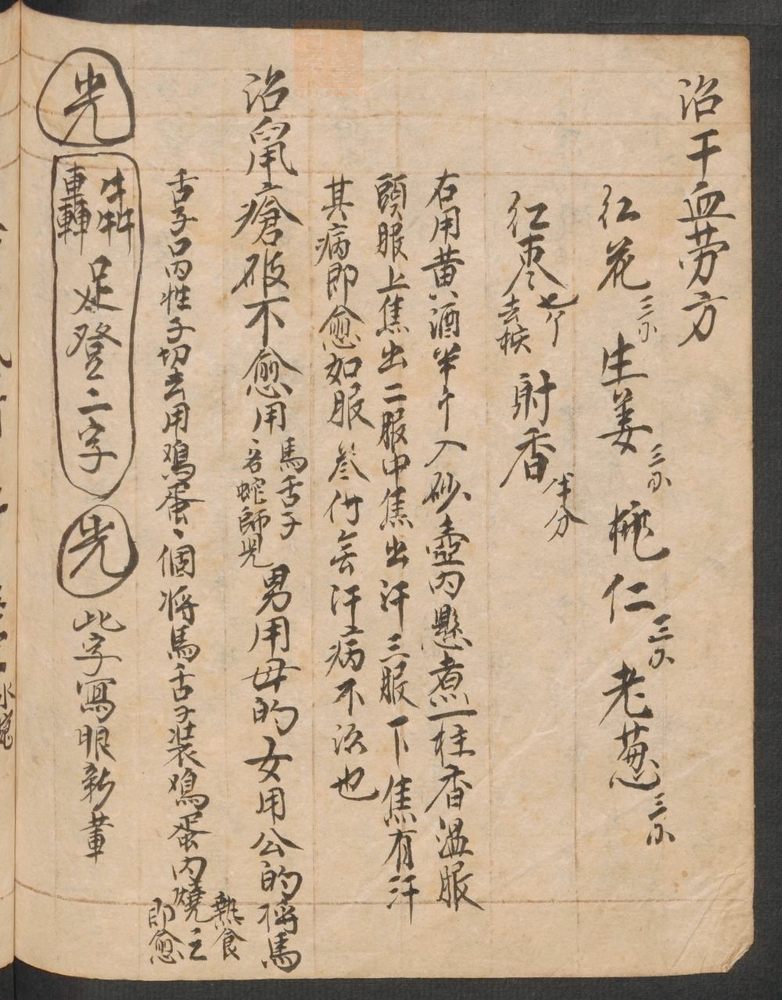 治干血劳方
红花三分 生姜三分 桃仁三分 老葱三分
红枣七个去核 射香半分
右用黄酒半斤入砂壶內悬煮一柱香温服
頭服上焦出二服中焦出汗三服下焦有汗
其病即愈如服叁付無汗病不治也
治鼠瘡破不愈用馬舌子 名蛇師 男用母的女用公的将馬
舌子口內性子切去用鳮蛋 個将馬舌子装鳮蛋內燒 熟食即愈
光 犇轟 足登二字 光 此字寫眼